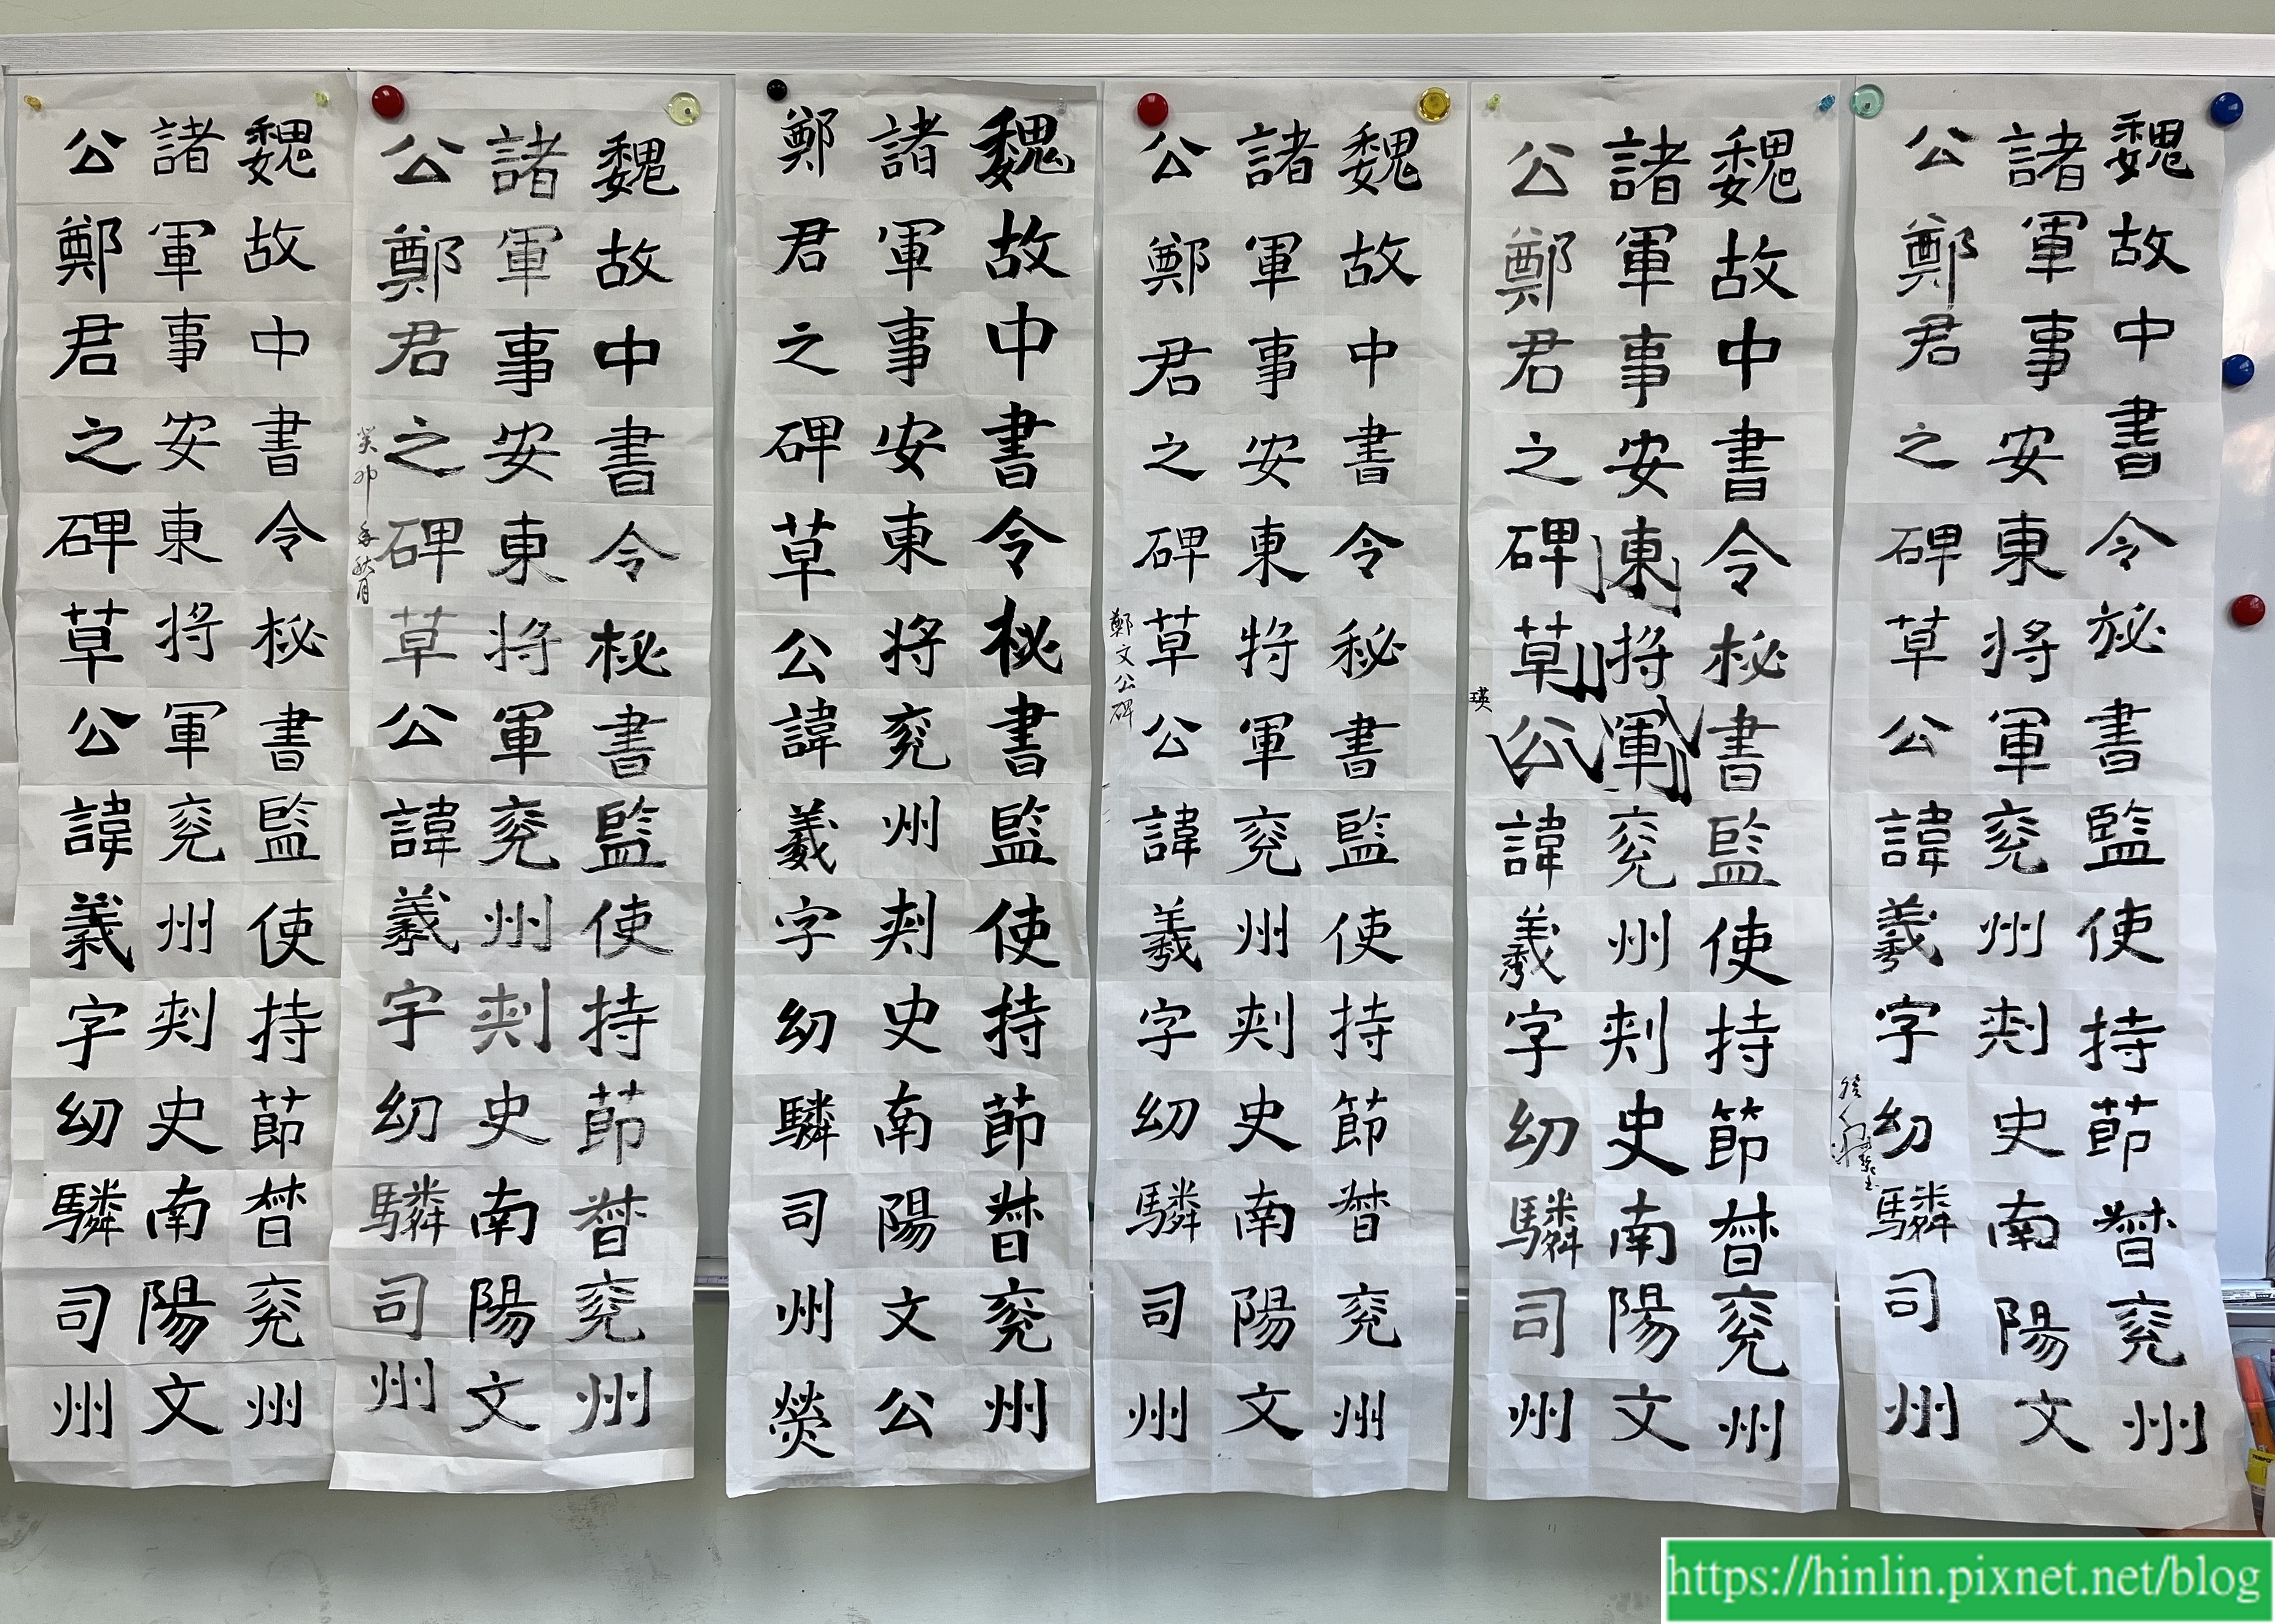 魏故中書令祕書監使持節督兗州
諸軍事安東將軍兗州刾史南陽文
公鄭君之碑草公諱羲字幼驎司州
魏故中書令祕書監使持節督兗州
諸軍事安東將軍兗州刾史南陽文
公鄭君之碑草公諱羲字幼驎司州
瑛
魏故中書令秘書監使持節督兗州
諸軍事安東將軍兗州刾史南陽文
公鄭君之碑草公諱羲字幼驎司州
鄭文公碑
魏故中書令祕書監使持節督兗州
諸軍事安東將兗州刾史南陽文公
鄭君之碑草公諱羲字幼驎司州熒
魏故中書令祕書監使持節督兗州
諸軍事安東將軍兗州刾史南陽文
公鄭君之碑草公諱羲字幼驎司州
癸卯年秋月
魏故中書令祕書監使持節督兗州
諸軍事安東將軍兗州刾史南陽文
公鄭君之碑草公諱羲字幼驎司州
https://hinlin.pixnet.net/blog